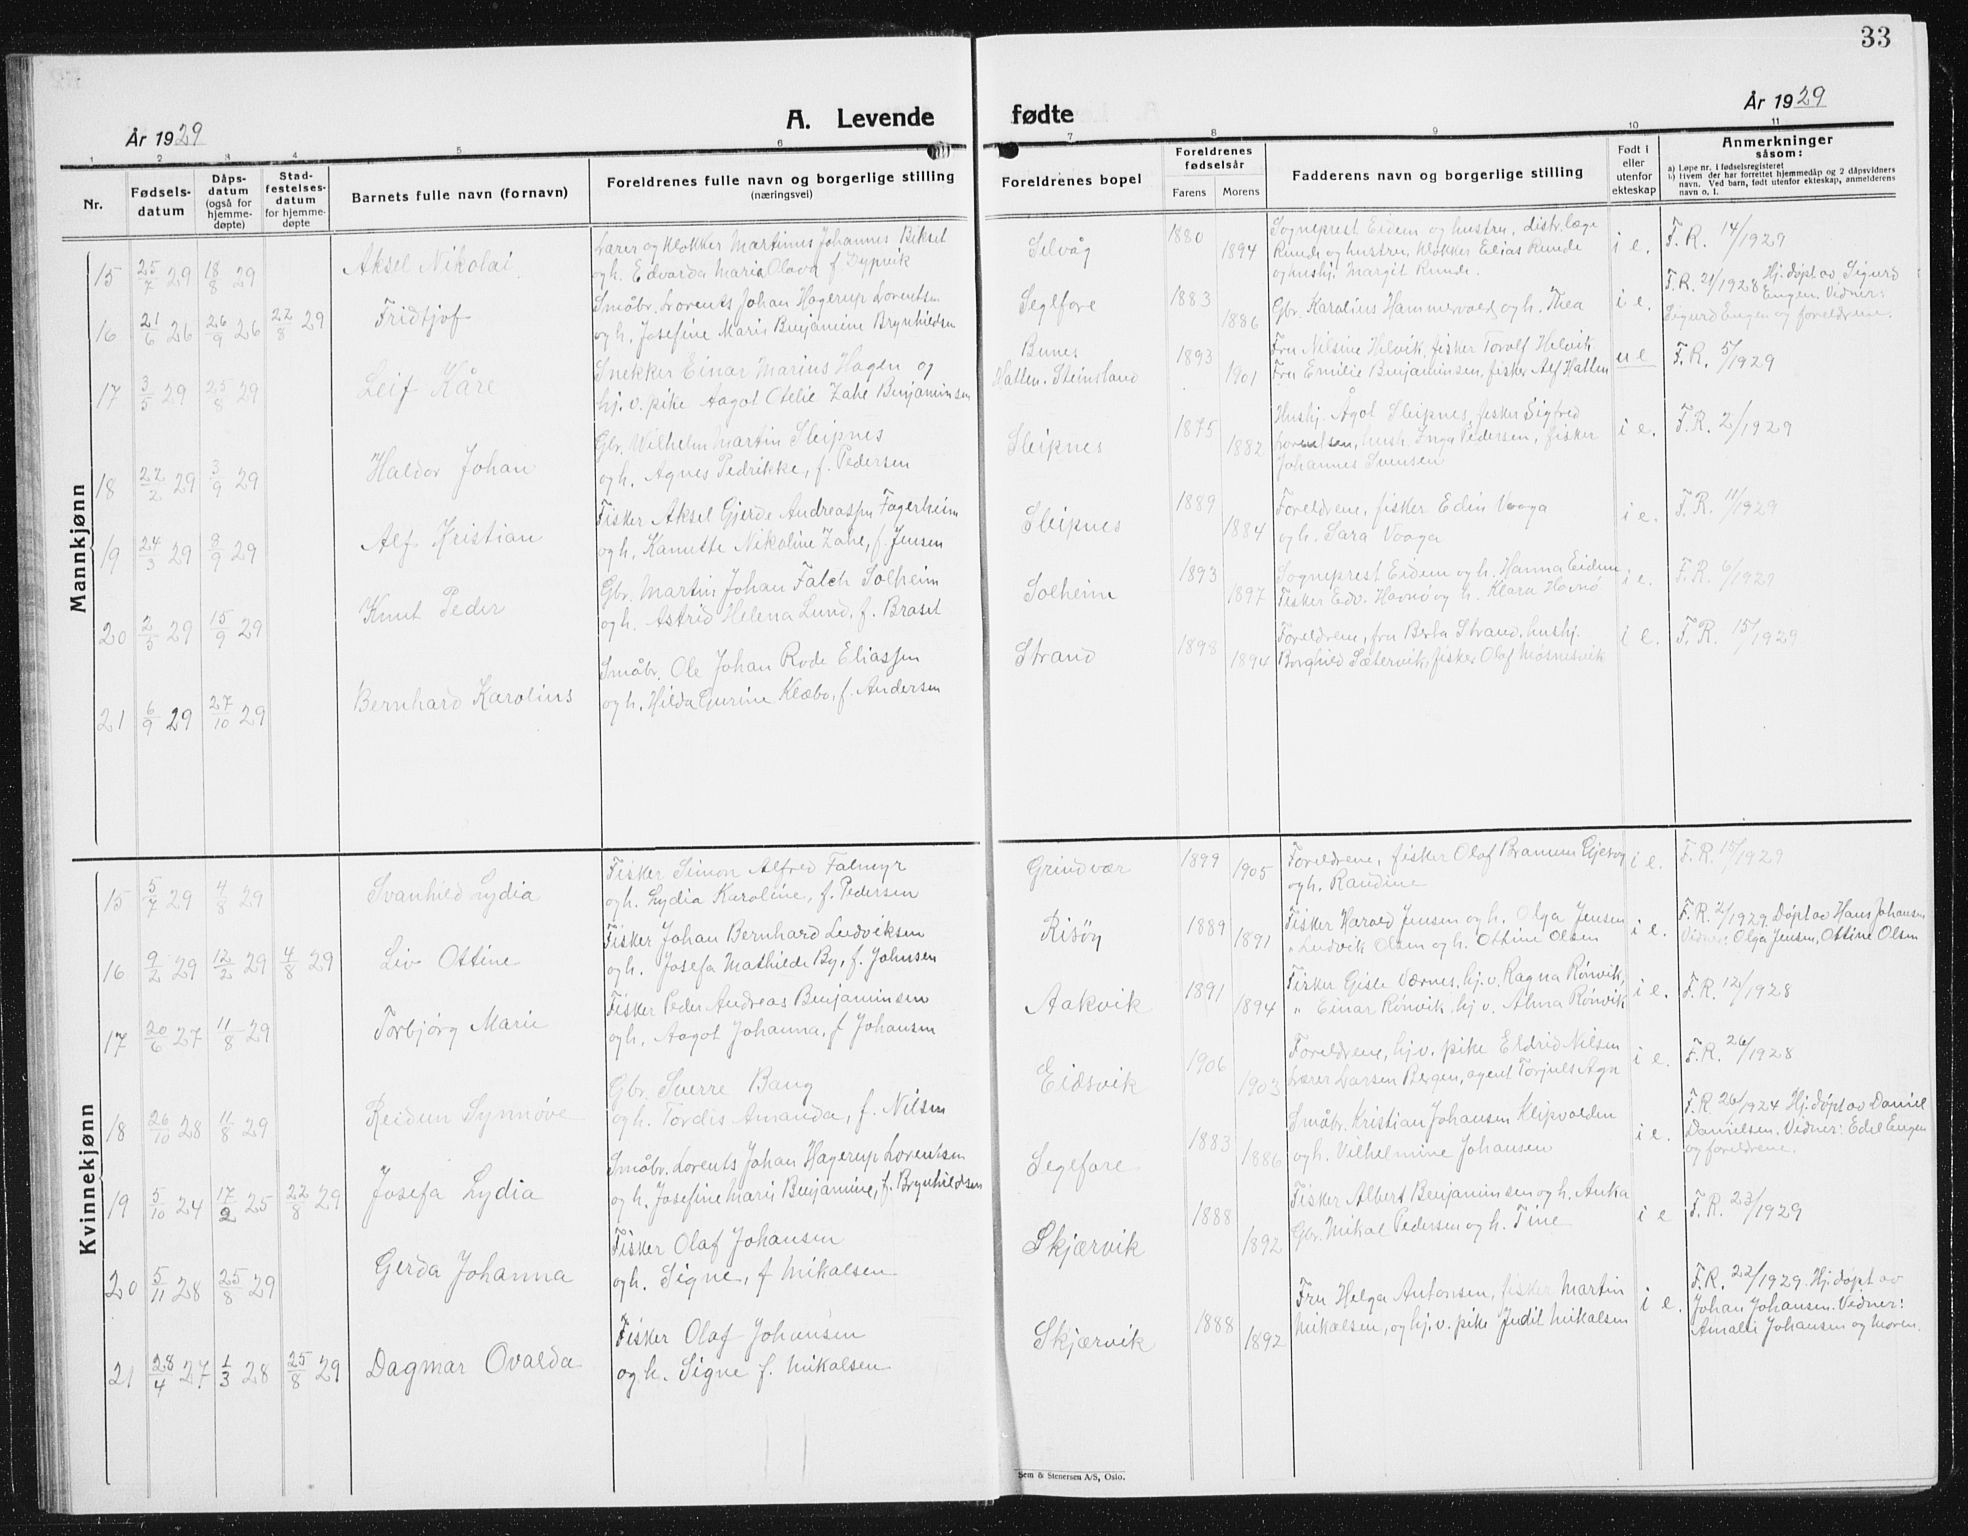 33
År 1929
A. Levende fødte
År 1929
1 2 3 4 5 6 7 8 9 10 11
Nr.
Fødsels-
datum
Dåps-
datum
(også for
hjemme-
døpte)
Stad-
festelses-
datum
for hjemme-
døpte
Barnets fulle navn (fornavn)
Foreldrenes fulle navn og borgerlige stilling
(næringsvei)
Foreldrenes bopel
Foreldrenes
fødselsår
Farens Morens
Fadderens navn og borgerlige stilling
Født i
eller
utenfor
ekteskap
Anmerkninger
såsom:
a) Løpe nr. i fødselsregisteret
b) Hvem der har forrettet hjemmedåp og 2 dåpsvidners
navn. Ved barn, født utenfor ekteskap, anmelderens
navn o. l.
Mannkjønn
15 25/7 29 18/8 29 Aksel Nikolai
Lærer og klokker Martinus Johannes Bikset
og h. Edvarda Maria Olava f. Dypvik
Selvåg 1880 1894
Sogneprest Eidem og hustru, distr.læge
Runde og hustru, klokker Elias Runde
og hushj. Margit Runde.
i e. F. R. 14/1929
16 21/6 26 26/9 26 22/8 29 Fridtjof
Småbr. Lorents Johan Hagerup Lorentsen
og h. Josefine Marie Benjamine Brynhildsen
Seglfore 1883 1886
Gbr. Karolius Hammervold og h. Thea
i e. F. R. 21/1928 Hj. døpt av Sigurd
Engen. Vidner:
Sigurd Engen og foreldrene.
17 3/5 29 25/8 29 Leif Kåre
Snekker Einar Marius Hagen og
hj. v. pike Aagot Otelie Zahl Benjaminsen
Bunes
Hatten. Steinsland 1893 1901
Fru Nilsine Helvik, fisker Torolf Helvik
Fru Emilie Benjaminsen, fisker Alf Hatten
u e F. R. 5/1929
18 22/2 29 3/9 29 Haldor Johan
Gbr. Wilhelm Martin Sleipnes
og h. Agnes Pedrikke, f. Pedersen
Sleipnes 1875 1882
Hushj. Ågot Sleipnes, fisker Sigfred
Lorentsen, hush. Inga Pedersen, fisker
Johannes Svensen
i e. F. R. 2/1929
19 24/3 29 8/9 29 Alf Kristian
Fisker Aksel Gjerde Andreassen Fagerheim
og h. Kanutte Nikoline Zahl, f. Jensen
Sleipnes 1889 1884
Foreldrene, fisker Edin Vaaga
og h. Sara Vaaga
i e. F. R. 11/1929
20 2/5 29 15/9 29 Knut Peder
Gbr. Martin Johan Falch Solheim
og h. Astrid Helena Lund, f. Braset
Solheim 1893 1897
Sogneprest Eidem og h. Hanna Eidem,
Fisker Edv. Havnø og h. Klara Havnø
i e. F. R. 6/1929
21 6/9 29 27/10 29 Bernhard Karolius
Småbr. Ole Johan Rode Eliassen
og h. Hilda Gurine Klæbo, f. Andersen
Strand 1898 1894
Foreldrene, fru Berta Strand, hushj.
Borghild Sætervik, fisker Olaf Mosnesvik
i e. F. R. 15/1929
Kvinnekjønn
15 5/7 29 4/8 29 Svanhild Lydia
Fisker Simon Alfred Falmyr
og h. Lydia Karoline, f. Pedersen
Grindvær 1899 1905
Foreldrene, fisker Olaf
og h. Randine
i e. F. R. 15/1929
16 9/2 29 12/2 29 4/8 29 Liv Ottine
Fisker Johan Bernhard Ludviksen
og h. Josefa Mathilde By, f. Johnsen
Risøy 1889 1891
Fisker Harald Jensen og h. Olga Jensen
" Ludvik Olsen og h. Ottine Olsen
i e. F. R. 2/1929 Døpt av Hans Johansen
Vidner: Olga Jensen, Ottine Olsen
17 20/6 27 11/8 29 Torbjørg Marie
Fisker Peder Andreas Benjaminsen
og h. Aagot Johanna, f. Johansen
Aakvik 1891 1894
Fisker Gisle Værnes, hj. v. Ragna Rønvik,
" Einar Rønvik, hj. v. Alma Rønvik
i e. F. R. 12/1928
18 26/10 28 11/8 29 Reidun Synnøve
Gbr. Sverre Bang
og h. Tordis Amanda, f. Nilsen
Eidsvik 1906 1903
Foreldrene, hj. v. pike Eldrid Nilsen
Lærer Larsen Bergen, agent Torjuls Aga
i e. F. R. 26/1928
19 5/10 24 17/2 25 22/8 29 Josefa Lydia
Småbr. Lorents Johan Hagerup Lorentsen
og h. Josefine Marie Benjamine, f. Brynhildsen
Seglfore 1883 1886
Småbr. Kristian Johansen Klipvolden
og h. Vilhelmine Johansen
i e. F. R. 26/1924 Hj. døpt av Daniel
Danielsen. Vidner: Edel Engen
og foreldrene.
20 5/11 28 25/8 29 Gerda Johanna
Fisker Olaf Johansen
og h. Signe, f Mikalsen
Skjærvik 1888 1892
Fisker Albert Benjaminsen og h. Anka
Gbr. Mikal Pedersen og h. Tine
i e F. R. 23/1929
21 28/4 27 1/3 28 25/8 29 Dagmar Ovalda
Fisker Olaf Johansen
og h. Signe f. Mikalsen
Skjærvik 1888 1892
Fru Helga Antonsen, fisker Martin
Mikalsen, og hj. v. pike Judit Mikalsen
i e. F. R. 22/1929. Hj. døpt av
Johan Johansen. Vidner:
Amalie Johansen og moren.
Sem & Stenersen A/S, Oslo.